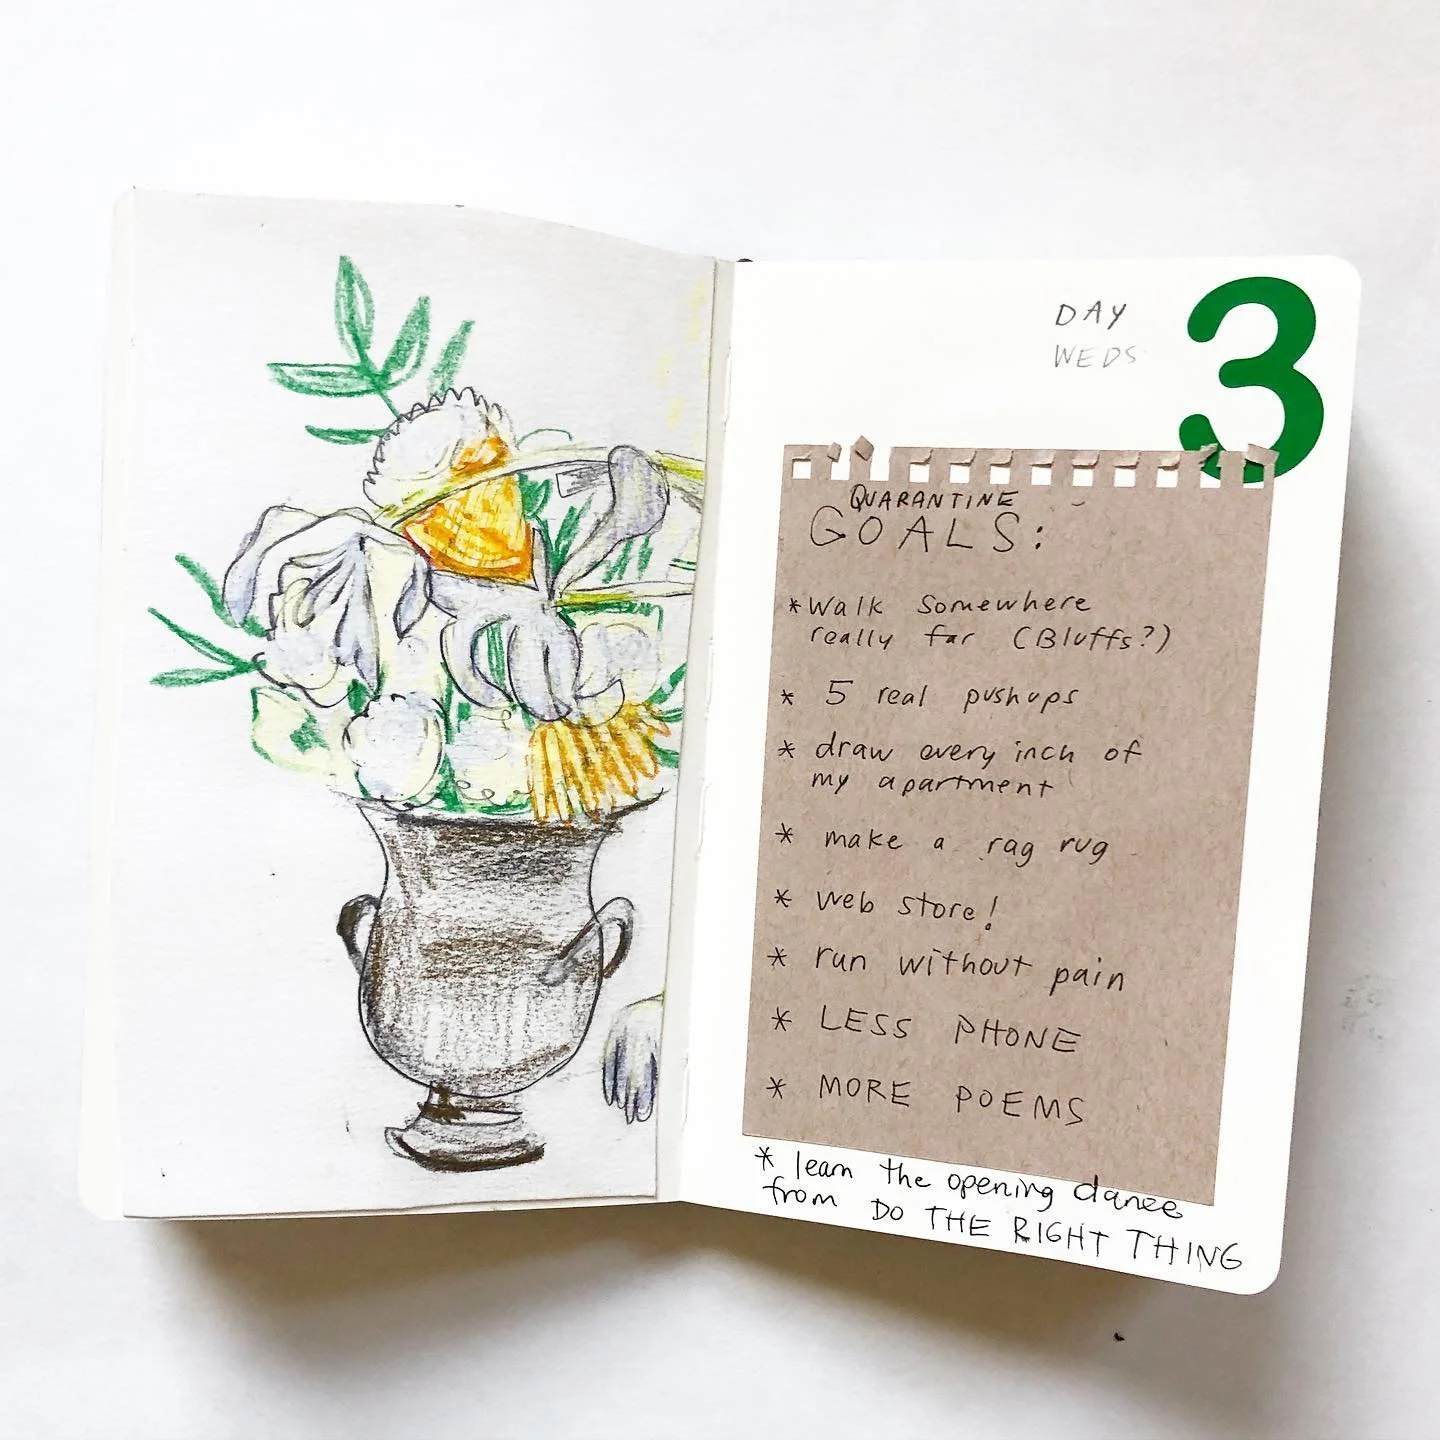 DAY 3
WEDS
QUARANTINE
GOALS:
* Walk somewhere
really far (Bluffs?)
* 5 real pushups
* draw every inch of
my apartment
* make a rag rug
* web store!
* run without pain
* LESS PHONE
* MORE POEMS
* learn the opening dance
from DO THE RIGHT THING